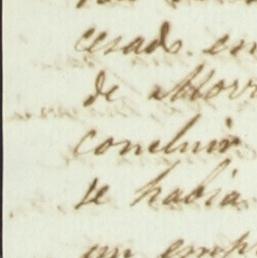 cesado en
de Morr
concluir
se habia
un emp